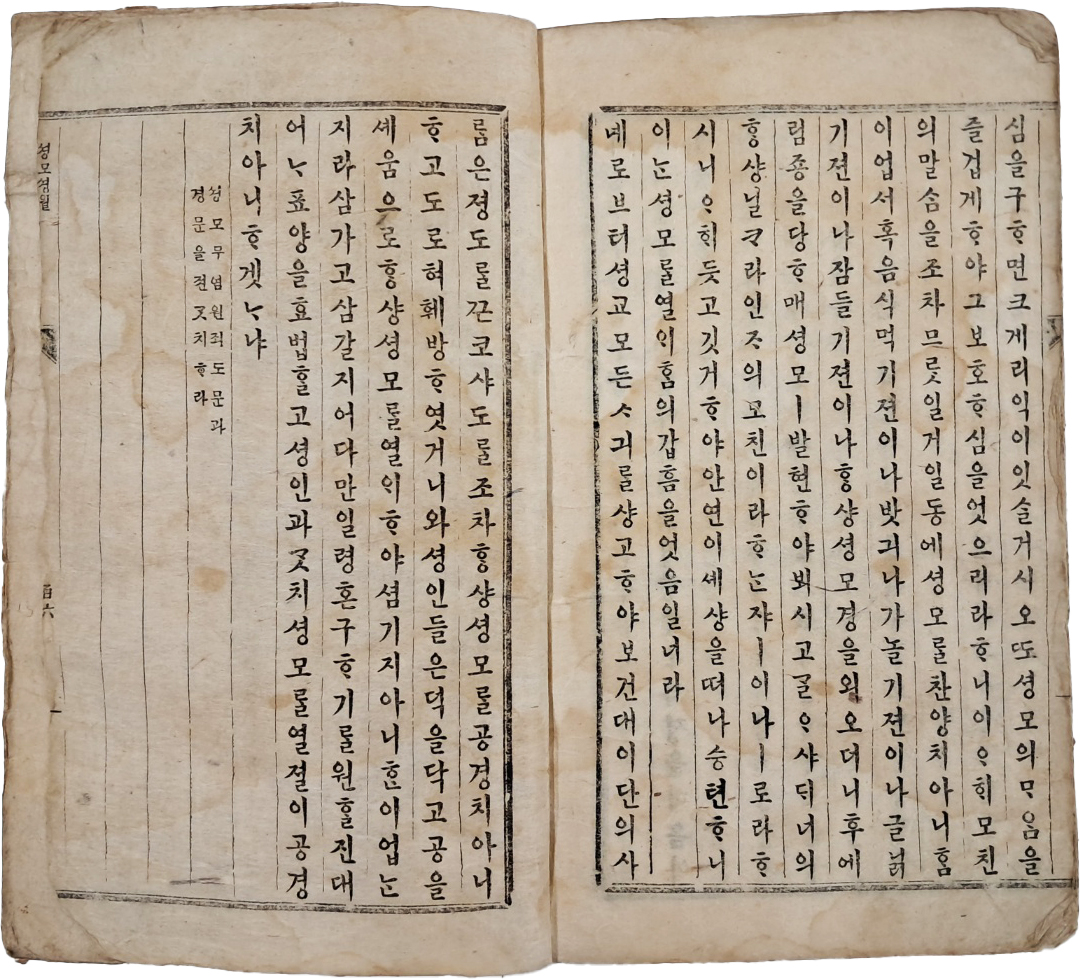 심을구ᄒᆞ면크게리익이잇슬거시오ᄯᅩ셩모의ᄆᆞᄋᆞᆷ을
즐겁게ᄒᆞ야그보호ᄒᆞ심을엇으리라ᄒᆞ니이ᄋᆞᄒᆡ모친
의말ᄉᆞᆷ을조차므릇일거일동에셩모ᄅᆞᆯ찬양치아니ᄒᆞᆷ
이업서혹음식먹기젼이나밧긔나가놀기젼이나글닑
기젼이나잠들기젼이나ᄒᆞᆼ샹셩모경을외오더니후에
림죵을당ᄒᆞ매셩모ㅣ발현ᄒᆞ야뵈시고ᄀᆞᆯᄋᆞ샤ᄃᆡ너의
ᄒᆞᆼ샹닐ᄏᆞ라인ᄌᆞ의모친이라ᄒᆞᄂᆞᆫ쟈ㅣ이나ㅣ로라ᄒᆞ
시니ᄋᆞᄒᆡ듯고깃거ᄒᆞ야안연이셰샹을ᄯᅥ나승텬ᄒᆞ니
이ᄂᆞᆫ셩모ᄅᆞᆯ열ᄋᆡᄒᆞᆷ의갑흠을엇음일너라
녜로브터셩교모든ᄉᆞ긔ᄅᆞᆯ샹고ᄒᆞ야보건대이단의사
ᄅᆞᆷ은졍도ᄅᆞᆯᄭᅳᆫ코샤도ᄅᆞᆯ조차ᄒᆞᆼ샹셩모ᄅᆞᆯ공경치아니
ᄒᆞ고도로혀훼방ᄒᆞ엿거니와셩인들은덕을닥고공을
셰움으로ᄒᆞᆼ샹셩모ᄅᆞᆯ열ᄋᆡᄒᆞ야셤기지아니ᄒᆞᆫ이업ᄂᆞ
지라삼가고삼갈지어다만일령혼구ᄒᆞ기ᄅᆞᆯ원ᄒᆞᆯ진대
어ᄂᆞ표양을효법ᄒᆞᆯ고셩인과ᄀᆞᆺ치셩모ᄅᆞᆯ열졀이공경
치아니ᄒᆞ겟ᄂᆞ냐
셩모무염원죄도문과
경문을젼ᄀᆞᆺ치ᄒᆞ라
셩모셩월
百六